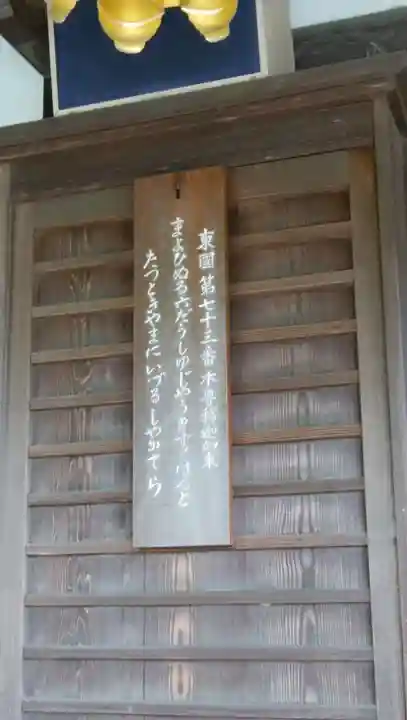 東国第七十三番本尊釈迦如来
まよひぬる六だうしゆじやうすくはんと
たつときやまにいづるしやかでら